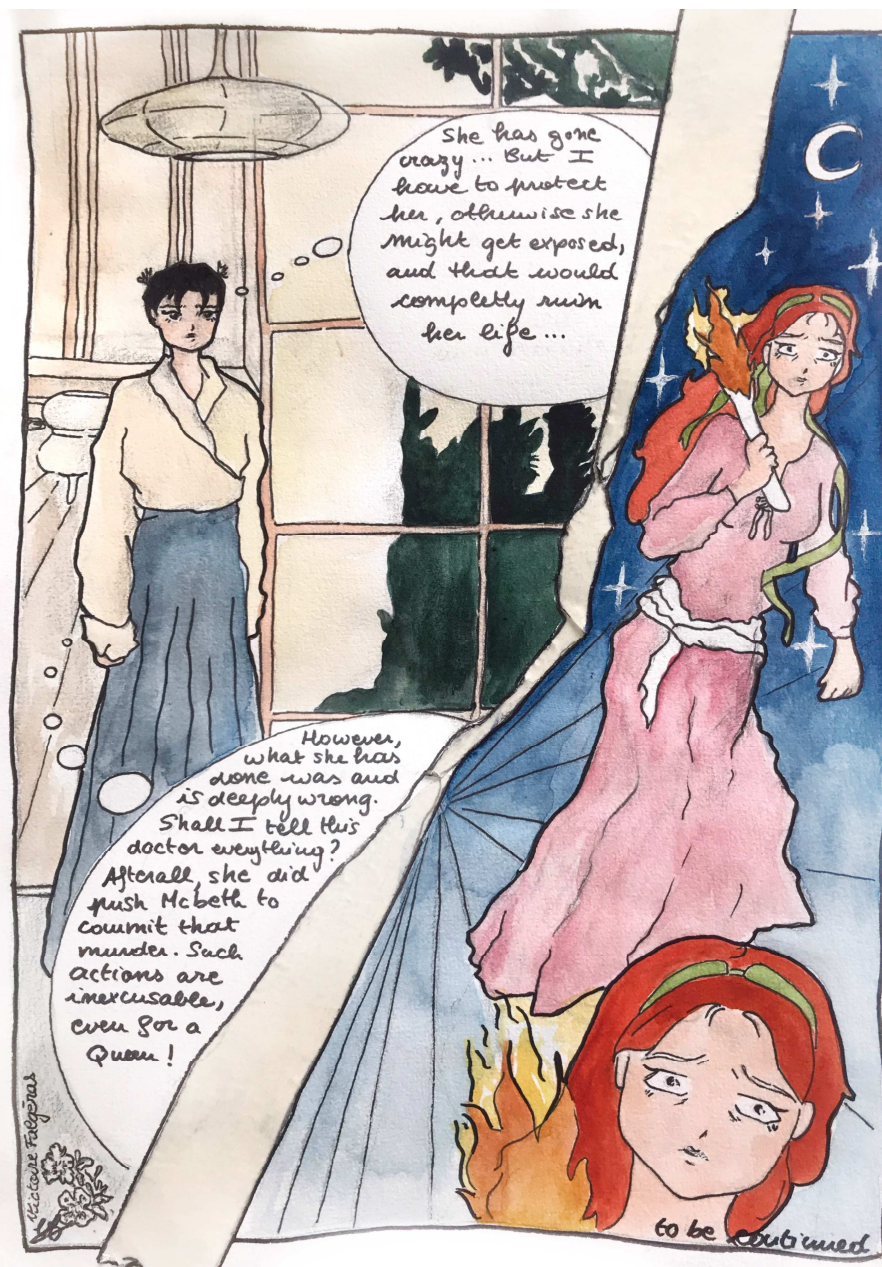 She has gone
crazy... But I
have to protect
her, otherwise she
might get exposed,
and that would
completly ruin
her life...
However,
what she has
done was and
is deeply wrong.
Shall I tell this
doctor everything?
Afterall, she did
push Mcbeth to
commit that
murder. Such
actions are
inexcusable,
even for a
Queen!
Victoire Falgéras
to be continued